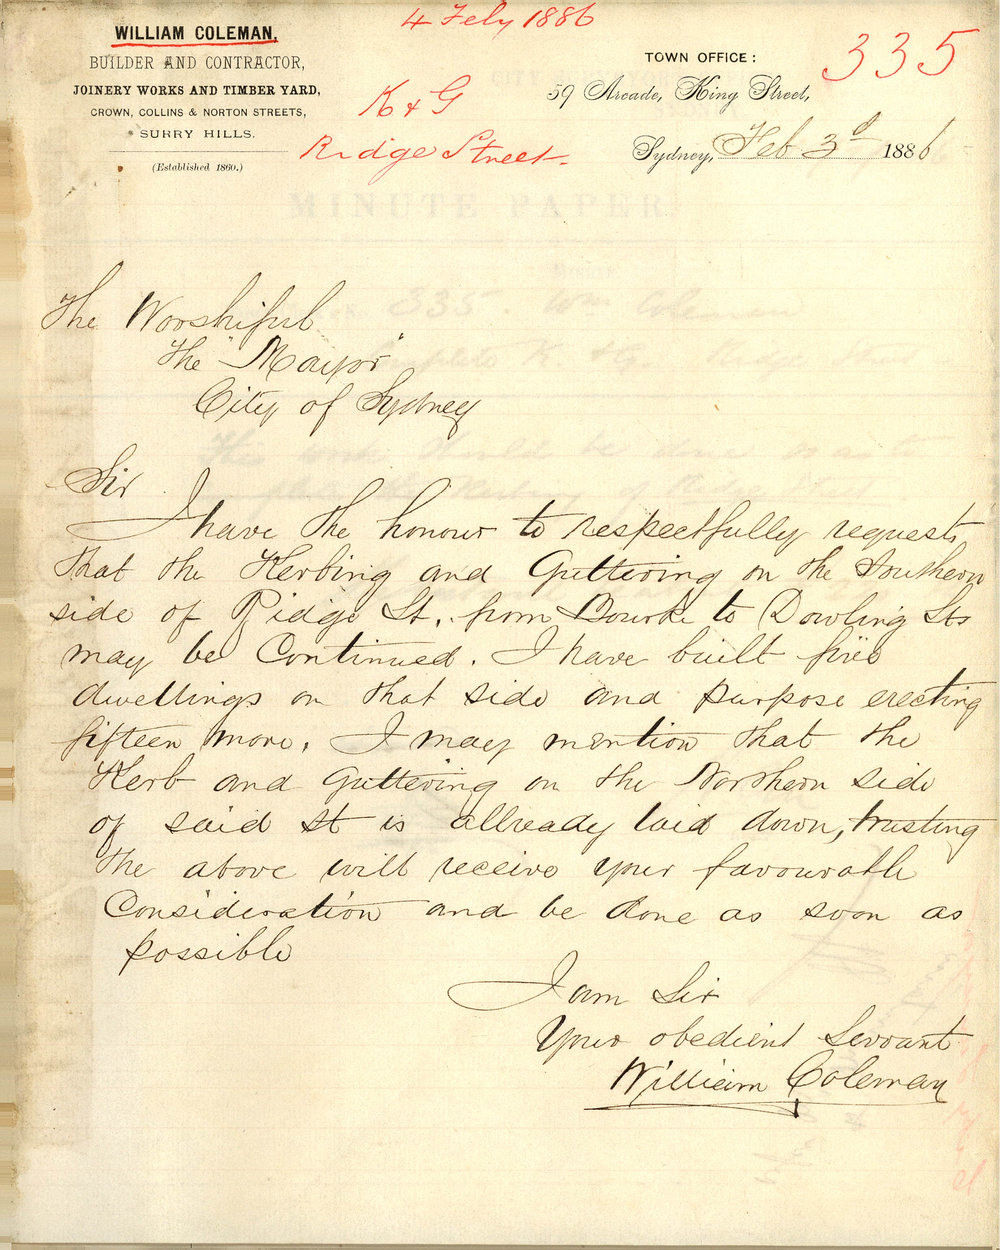 4 Feby 1886
335
WILLIAM COLEMAN,
BUILDER AND CONTRACTOR,
JOINERY WORKS AND TIMBER YARD,
CROWN, COLLINS & NORTON STREETS,
SURRY HILLS.
(Established 1860.)
K & G
Ridge Street.
TOWN OFFICE:
59 Arcade, King Street,
Sydney, Feb 3d 1886
The Worshiful
The "Mayor"
City of Sydney
Sir
I have the honour to respectfully request
that the Kerbing and Guttering on the Southern
side of Ridge St, from Bourke to Dowling Sts
may be Continued. I have built five
dwellings on that side and purpose erecting
fifteen more. I may mention that the
Kerb and Guttering on the Northern side
of said St is allready laid down, trusting
the above will receive your favourable
Consideration and be done as soon as
possible
I am Sir
Your obedient Servant
William Coleman
MINUTE PAPER
335 Wm Coleman